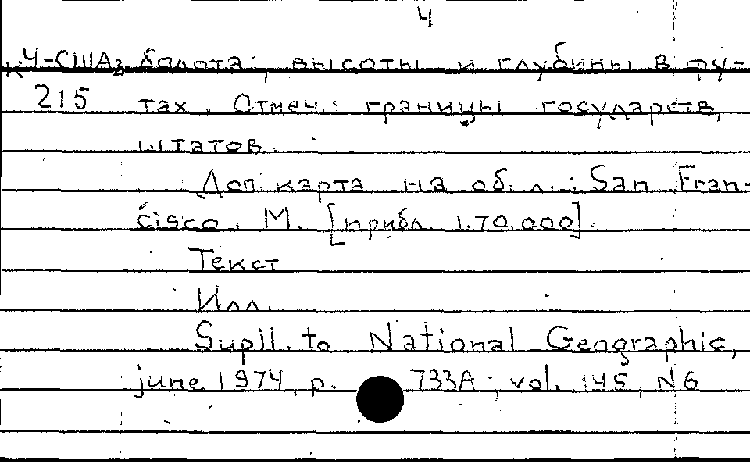 4
К 4-США2 болота; высоты и глубины в фу-
215 тах. Отмеч.: границы государств,
штатов.
Доп. карта на об. л.: San Fran-
cisco. М. [прибл. 1:70 000].
Текст
Илл.
Supil. to National Geographic,
june 1974, p. 733A; vol. 145, N6